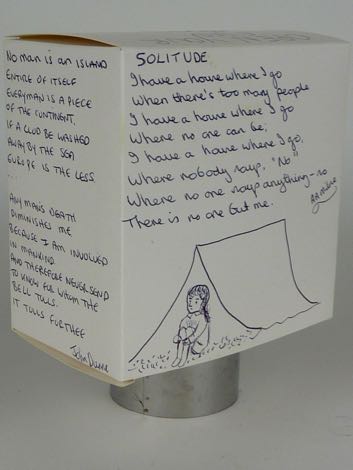 NO MAN IS AN ISLAND
ENTIRE OF ITSELF
EVERYMAN IS A PIECE
OF THE CONTINENT,
IF A CLOD BE WASHED
AWAY BY THE SEA
EUROPE IS THE LESS
...
ANY MANS DEATH
DIMINISHES ME
BECAUSE I AM INVOLVED
IN MANKIND
AND THEREFORE NEVER SEND
TO KNOW FOR WHOM THE
BELL TOLLS.
IT TOLLS FORTHEE
John Donne
SOLITUDE
I have a house where I go
When there's too many people
I have a house where I go
Where no one can be;
I have a house where I go,
Where nobody says, "No"
Where no one says anything - so
There is no one but me.
AA Milne